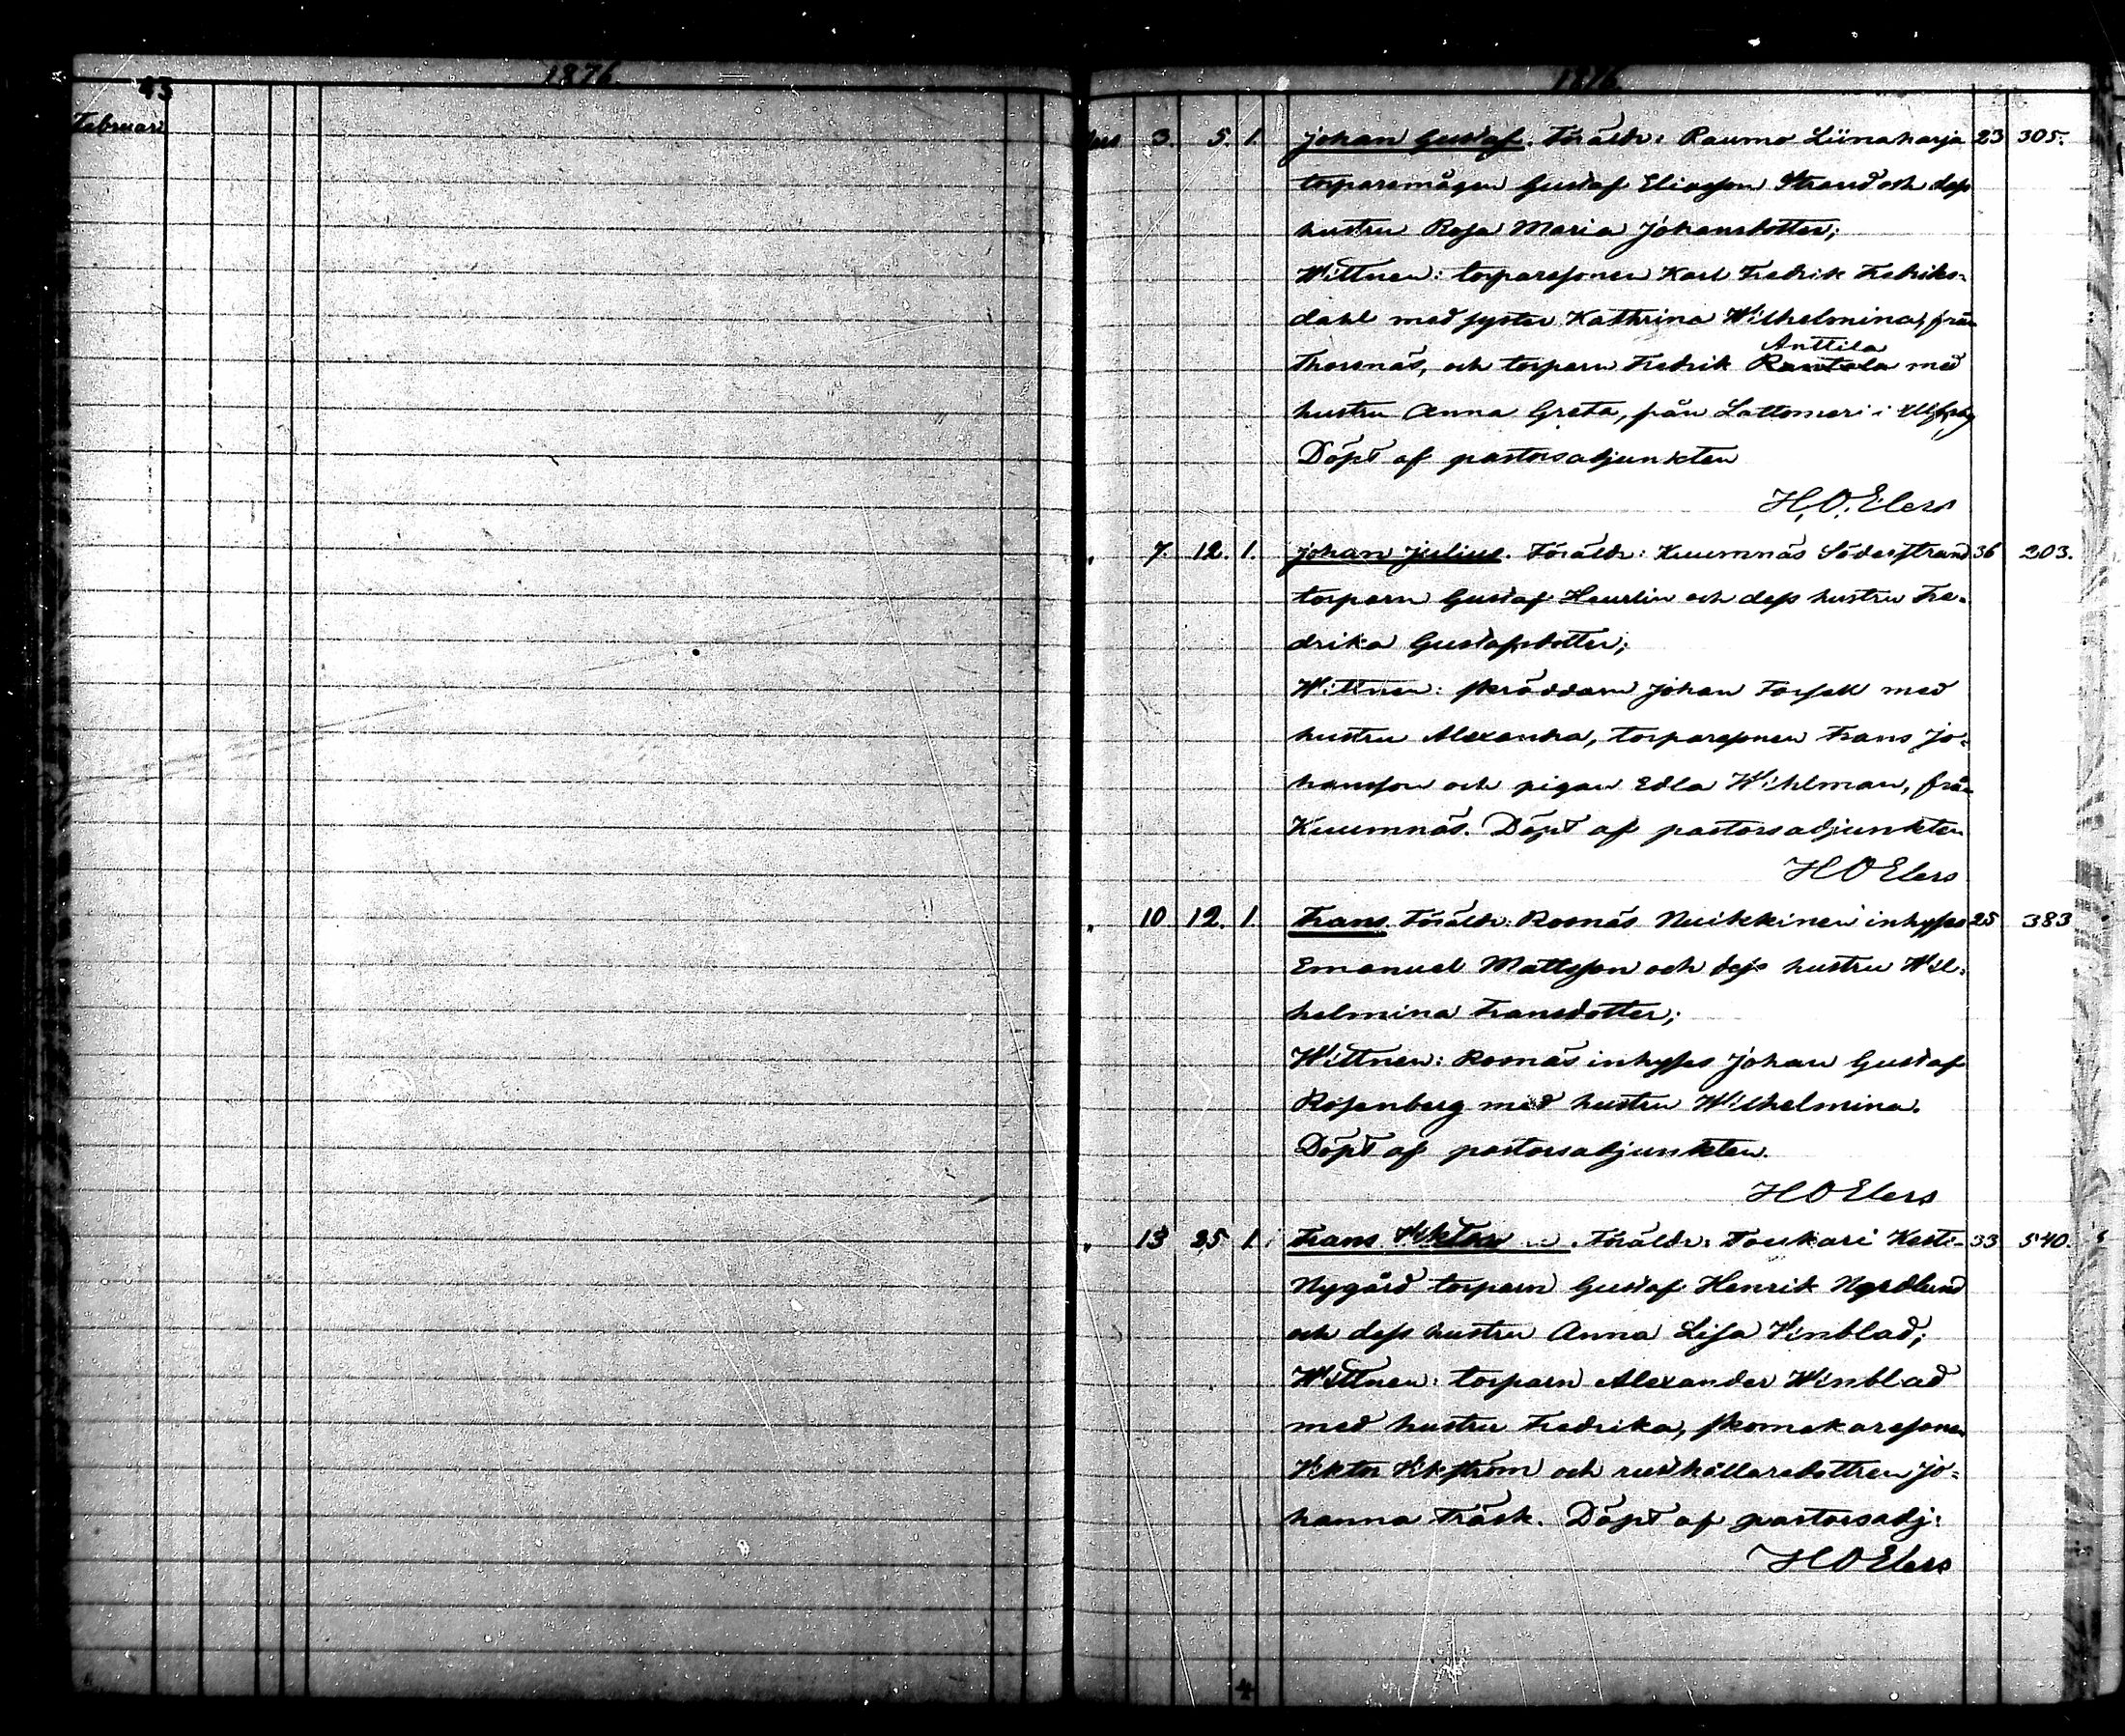 1876.
43
Februari
1876.
Mars 3. 5. 1. Johan Gustaf. Föräldr: Raumo Liinaharja 23 305.
torparemågen Gustaf Eliasson Strand och dess
hustru Rosa Maria Johansdotter;
Wittnen: torparesonen Karl Fredrik Fredriks-
dahl med syster Kathrina Wilhelmina, från
Anttila
Thorsnäs, och torparn Fredrik Rantala med
hustru Anna Greta, från Lattomeri i Ulfsby
Döpt af pastorsadjunkten
H. O. Elers
" 7. 12. 1. Johan Julius. Föräldr: Kuumnäs Söderstrand 36 203.
torparn Gustaf Heurlin och dess hustru Fre-
drika Gustafsdotter;
Wittnen: skräddarn Johan Forsell med
hustru Alexandra, torparesonen Frans Jo-
hansson och pigan Edla Wihlman, från
Kuumnäs. Döpt af pastorsadjunkten
H O Elers
" 10 12. 1. Frans. Föräldr: Rosnäs Nuikkinen inhyses 25 383
Emanuel Mattsson och dess hustru Wil-
helmina Fransdotter;
Wittnen: Rosnäs inhyses Johan Gustaf
Rosenberg med hustru Wilhelmina.
Döpt af pastorsadjunkten.
H O Elers
" 13 25 1. Frans Viktor. Föräldr: Toukari Kesti- 33 540.
Nygård torparn Gustaf Henrik Nordlund
och dess hustru Anna Lisa Winblad;
Wittnen: torparn Alexander Winblad
med hustru Fredrika, skomakaresonen
Viktor Vikström och rusthållaredottren Jo-
hanna Träsk. Döpt af pastorsadj:
H O Elers
4